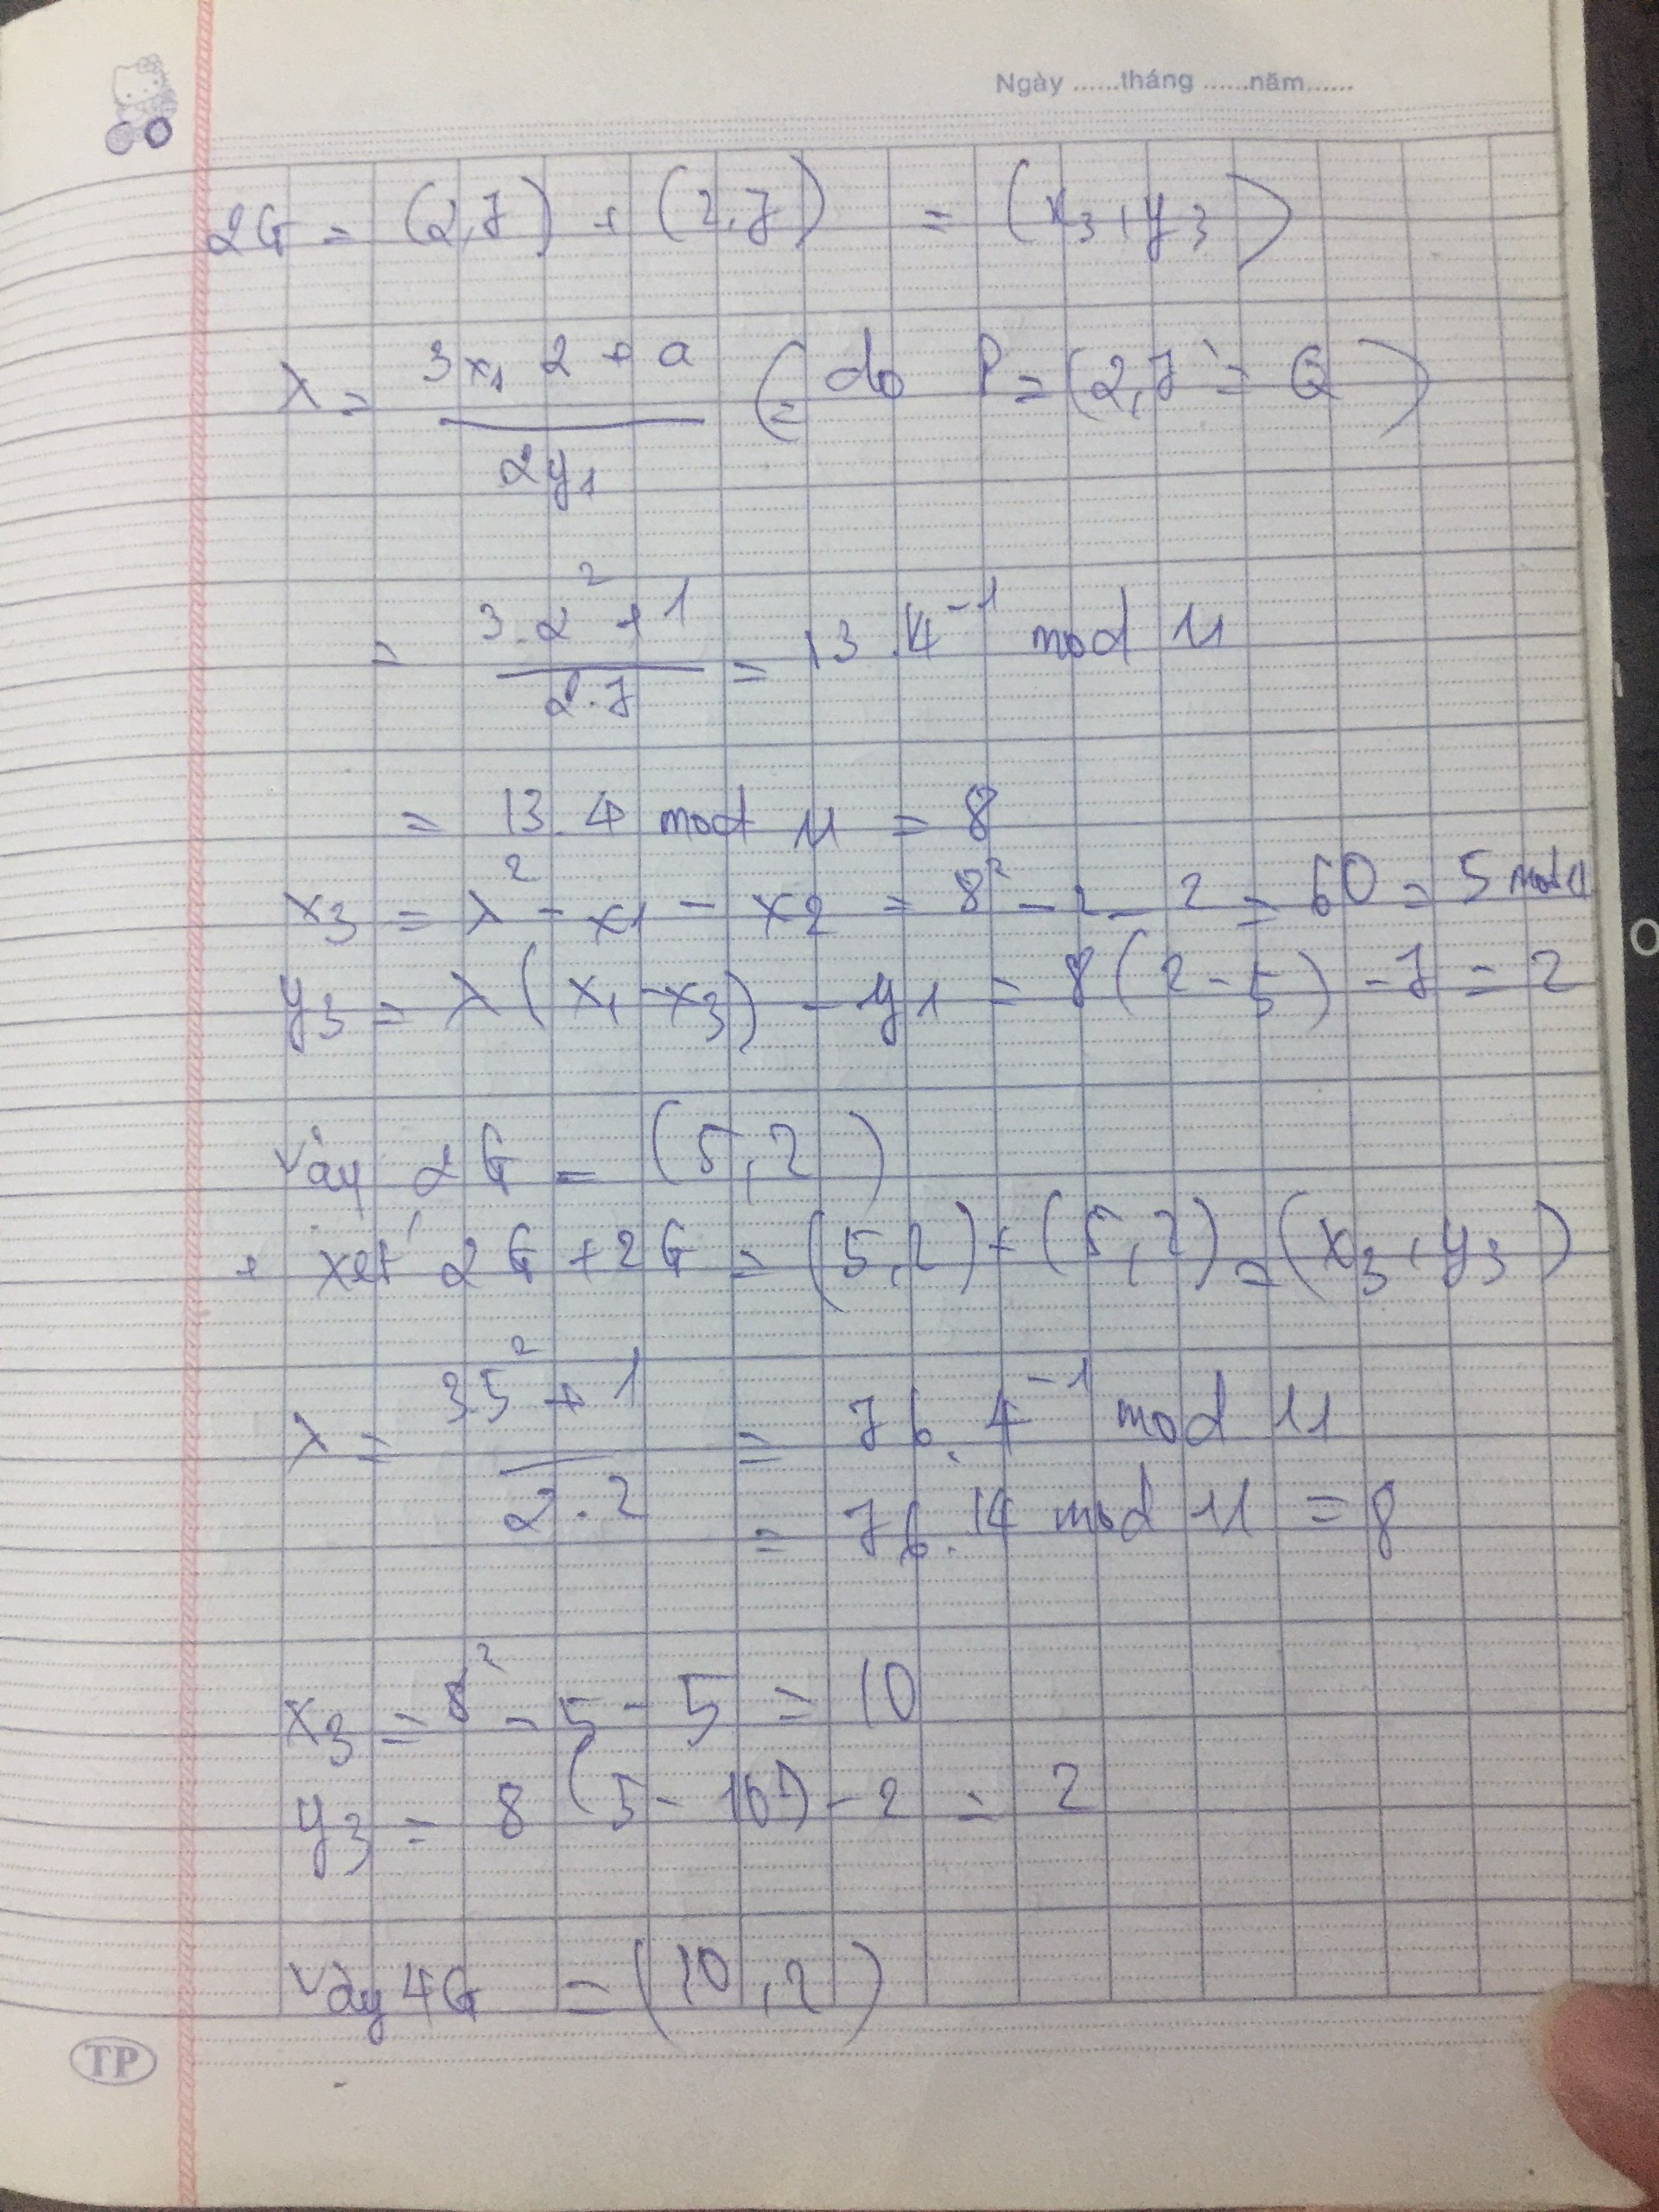 Ngày ......tháng ......năm......
2G = (2,7) + (2,7) = (x3, y3)
λ = (3x1 2 + a) / (2y1) (= do P = (2,7) = Q)
= (3.2² + 1) / (2.7) = 13.14⁻¹ mod 11
= 13.4 mod 11 = 8
x3 = λ² - x1 - x2 = 8² - 2 - 2 = 60 = 5 mod 11
y3 = λ(x1 - x3) - y1 = 8(2 - 5) - 7 = 2
Vậy 2G = (5,2)
+ xét 2G + 2G = (5,2) + (5,2) = (x3, y3)
λ = (3.5² + 1) / (2.2) = 76.4⁻¹ mod 11
= 76.14 mod 11 = 8
x3 = 8² - 5 - 5 = 10
y3 = 8(5 - 10) - 2 = 2
Vậy 4G = (10,2)
TP